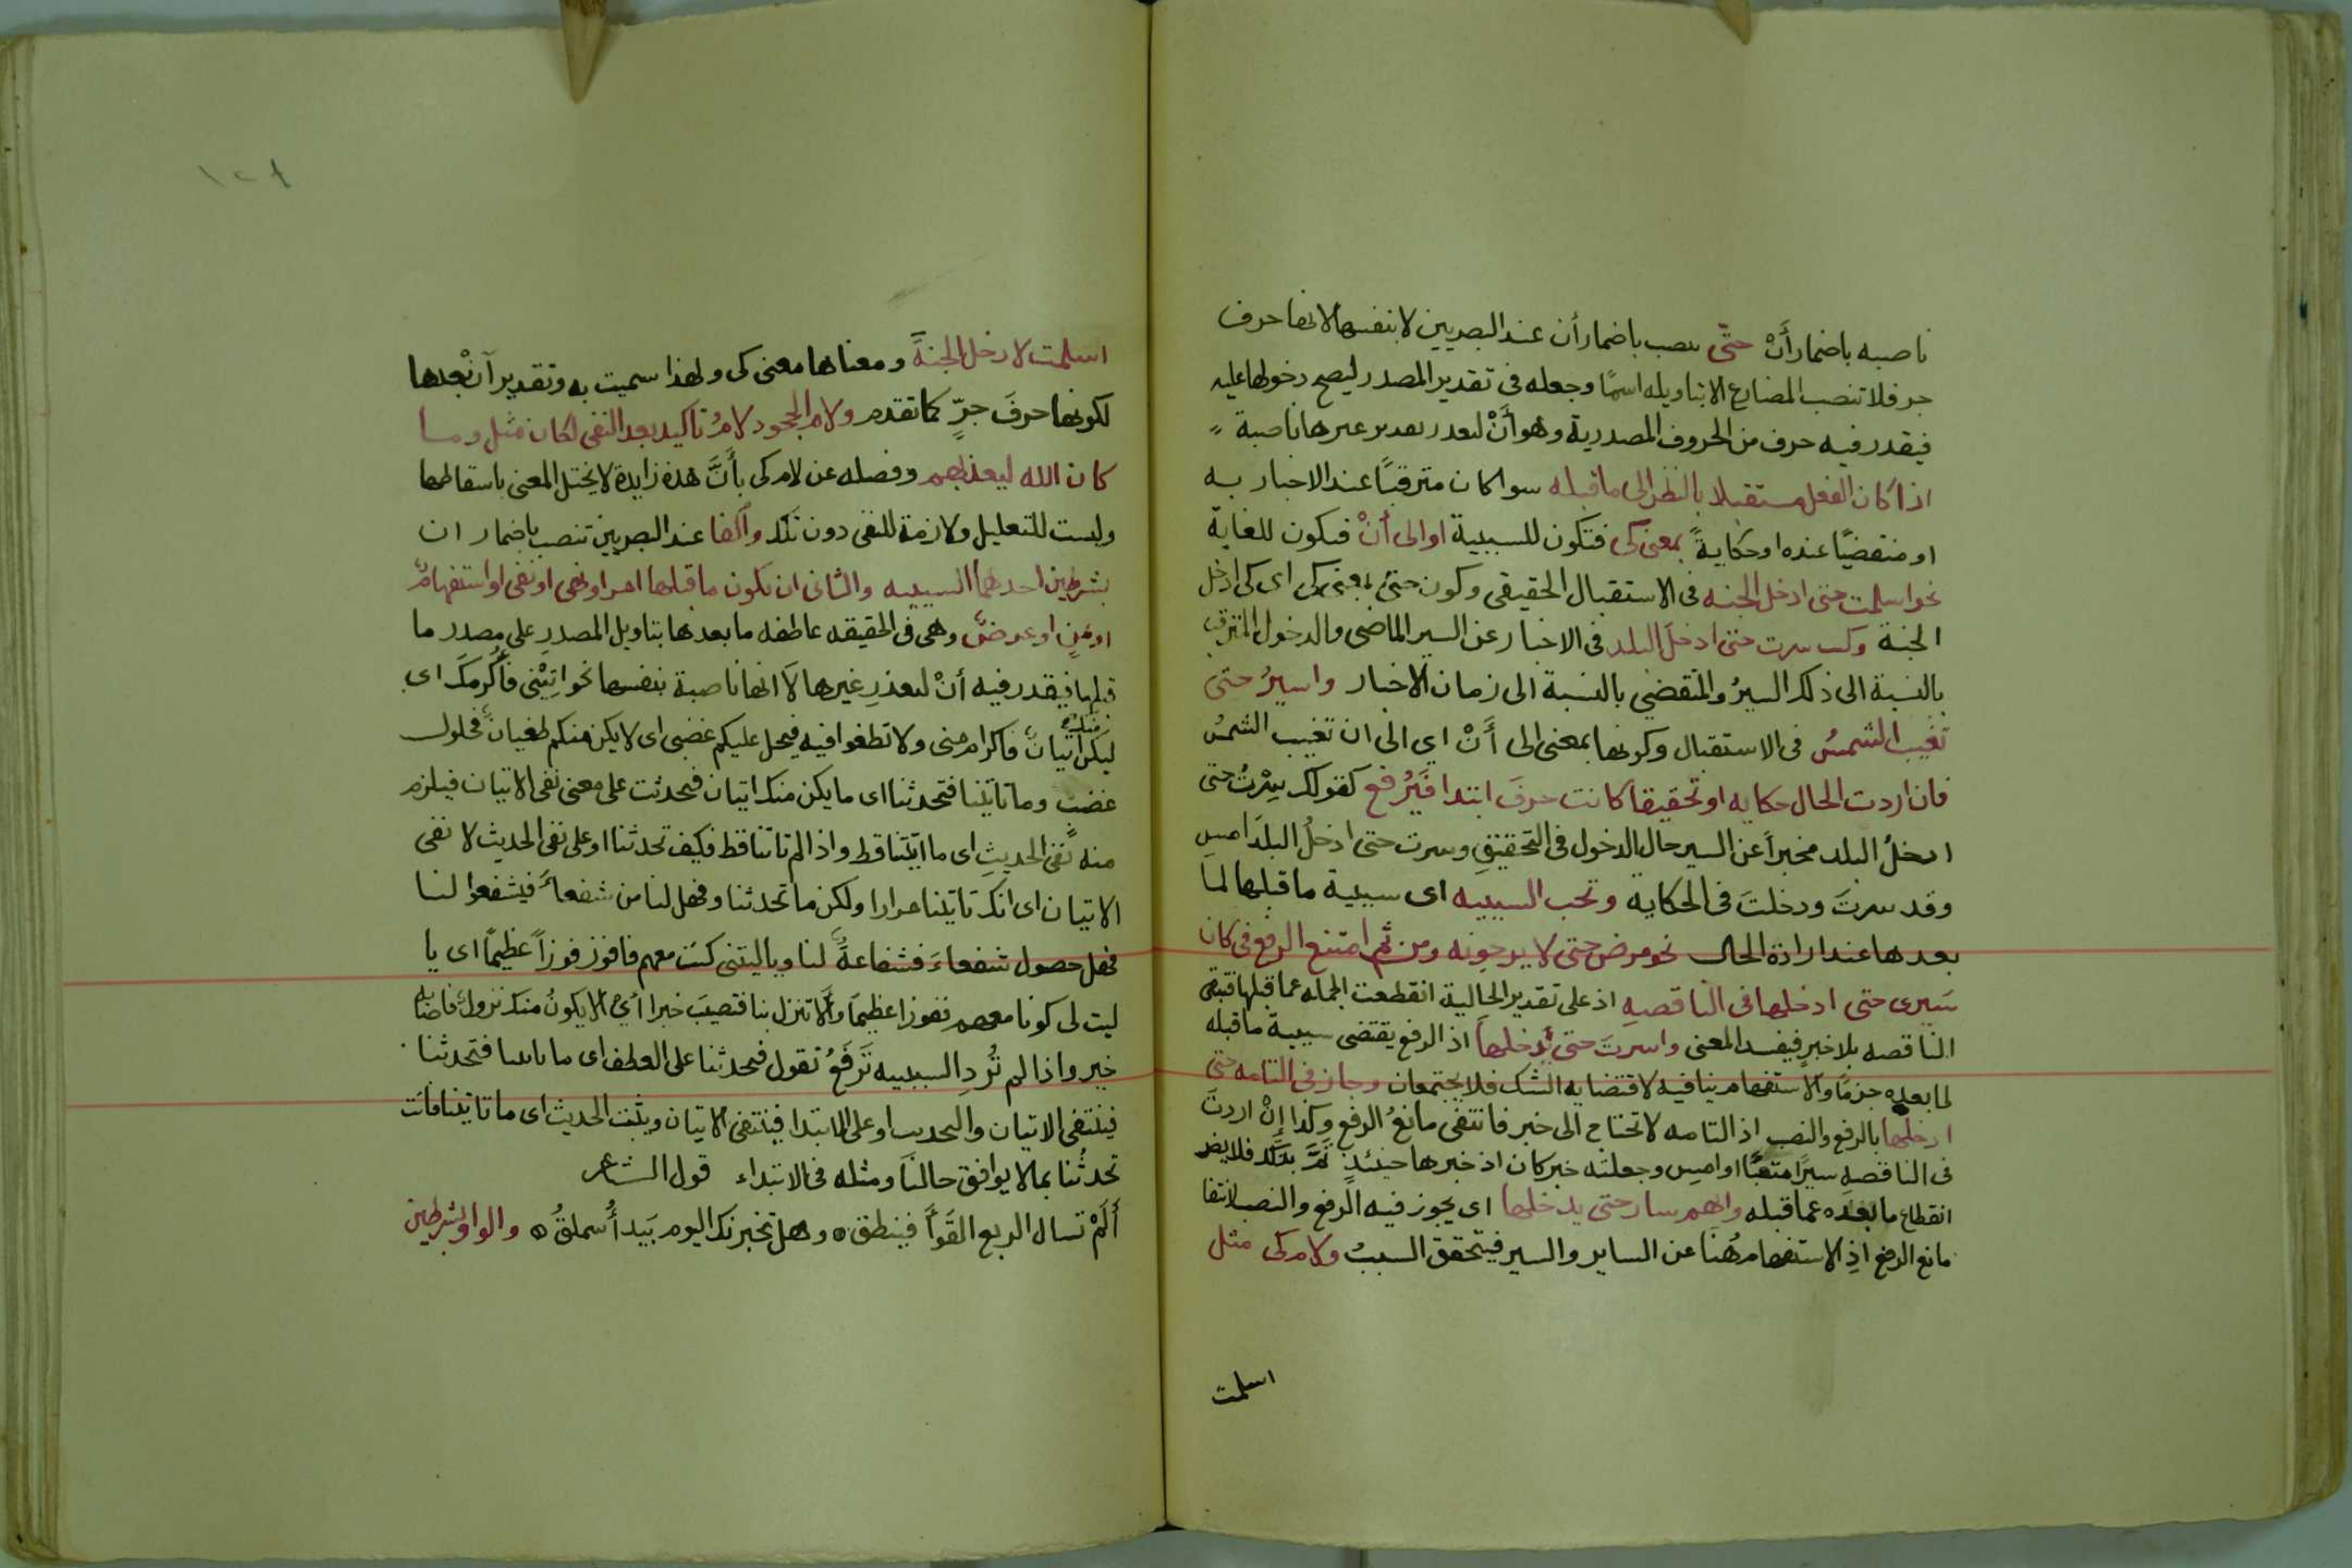 ناصبه باضمار أَنْ حتّى تنصب باضمار أن عند البصريين لا بنفسها لانها حرف
جر فلا تنصب المضارع الا بتاويله اسمًا وجعله فى تقدير المصدر ليصح دخولها عليه
فيقدر فيه حرف من الحروف المصدرية وهو أَنْ لتعدر تقدير غيرها ناصبة
اذا كان الفعل مستقبلا بالنظر الى ما قبله سوا كان مترقبًا عند الاخبار به
او منقضيًا عنده او حكايةً بمعنى كى فتكون للسببية او الى أنْ فتكون للغاية
نحو اسلمت حتى ادخل الجنه فى الاستقبال الحقيقى وكون حتى بمعنى كى اى كى ادخل
الجنة وكنت سرت حتى ادخل البلد فى الاخبار عن السير الماضى والدخول المترقب
بالنسبة الى ذلك السيرُ والمنقضي بالنسبة الى زمان الاخبار واسيرُ حتى
تغيب الشمسُ فى الاستقبال وكونها بمعنى الى أَنْ اي الى ان تغيب الشمسُ
فان اردت الحال حكايه او تحقيقا كانت حرفَ ابتدا فَيُرفع كقولك سِرْتُ حتى
ادخلُ البلد مخبراً عن السير حال الدخول فى التحقيقِ وسرت حتى ادخلُ البلدَ امسِ
وقد سرتَ ودخلتَ فى الحكايه وتجب السببيه اى سببية ما قبلها لما
بعدها عند ارادة الحال نحو مرض حتى لا يرجونه ومن ثم امتنع الرفع فى كان
سَيرى حتى ادخلها فى الناقصهِ اذ على تقدير الحالية انقطعت الجمله عما قبلها فتبقى
الناقصه بلا خبرٍ فيفسد المعنى واسرتَ حتى تدخلها اذ الرفع يقتضى سببية ما قبله
لما بعده جزمًا والاستفهام ينافيه لاقتضايه الشك فلا يجتمعان وجاز فى التامه حتى
ادخلها بالرفع والنصب اذ التامه لا تحتاج الى خبر فانتفى مانعُ الرفع وكذا إنْ اردتَ
فى الناقصهِ سيرًا متعبًا او امسِ وجعلته خبر كان اذ خبرها حينئذٍ تَمَّ بذلك فلا يضر
انقطاع ما بعده عما قبله وايهم سار حتى يدخلها اى يجوز فيه الرفع والنصب لانتفا
مانع الرفع اذِ الاستفهام هُنا عن الساير والسير فيتحقق السببُ ولام كى مثل
اسلمت
١٢٨
اسلمت لادخل الجنةَ ومعناها معنى كى ولهذا سميت به وتقدير أنْ بعدها
لكونها حرفَ جرٍّ كما تقدم ولام الجحود لامُ تاكيد بعد النفى لكان مثل وما
كان الله ليعذبهم وفصله عن لام كى بأَنَّ هذه زايدة لا يختل المعنى باسقاطها
وليست للتعليل ولازمة للنفى دون تلك والفا عند البصريين تنصب باضمار ان
بشرطين احدهما السببيه والثانى ان يكون ما قبلها امر او نهى او نفى او استفهامٌ
او تمنٍ او عرضٌ وهى فى الحقيقه عاطفه ما بعدها بتاويل المصدرِ على مصدر ما
قبلها فيقدر فيه أنْ لتعذرِ غيرها لا انها ناصبة بنفسها نحو ايتِنْى فأُكرمكَ اى
ليكن منك اتيانٌ فاكرام منى ولا تطغوا فيه فيحل عليكم غضبى اى لا يكن منكم طغيانٌ فحلول
غضب وما تاتينا فتحدثنا اى ما يكن منك اتيان فتحدثت على معنى نفى الاتيان فيلزم
منه نفى الحديثِ اى ما اتيتنا قط واذا لم تاتنا قط فكيف تحدثنا او على نفى الحديث لا نفى
الاتيان اى انك تاتينا مرارا ولكن ما تحدثنا وفهل لنا من شفعاً فيشفعوا لنا
فهل حصول شفعاءَ فشفاعةٌ لنا وياليتنى كنت معهم فافوز فوزاً عظيمًا اى يا
ليت لى كونا معهم ففوزا عظيمًا وألا تنزل بنا فتصيبَ خيرا أي الا يكونُ منك نزولٌ فاصابه
خير واذا لم تُردِ السببيه تَرفَعُ تقول فتحدثنا على العطف اى ما تاتينا فتحدثنا
فينتفى الاتيان والتحديث او على الابتدا فينتفى الاتيان ويثبت الحديث اى ما تاتينا فانت
تحدثُنا بما لا يوافق حالنَا ومثله فى الابتداء قول الشاعر
أَلَمْ تسال الربع القَوَاً فينطق ٥ وهل تخبرنك اليوم بَيدأُ سملقُ ٥ والواو بشرطين